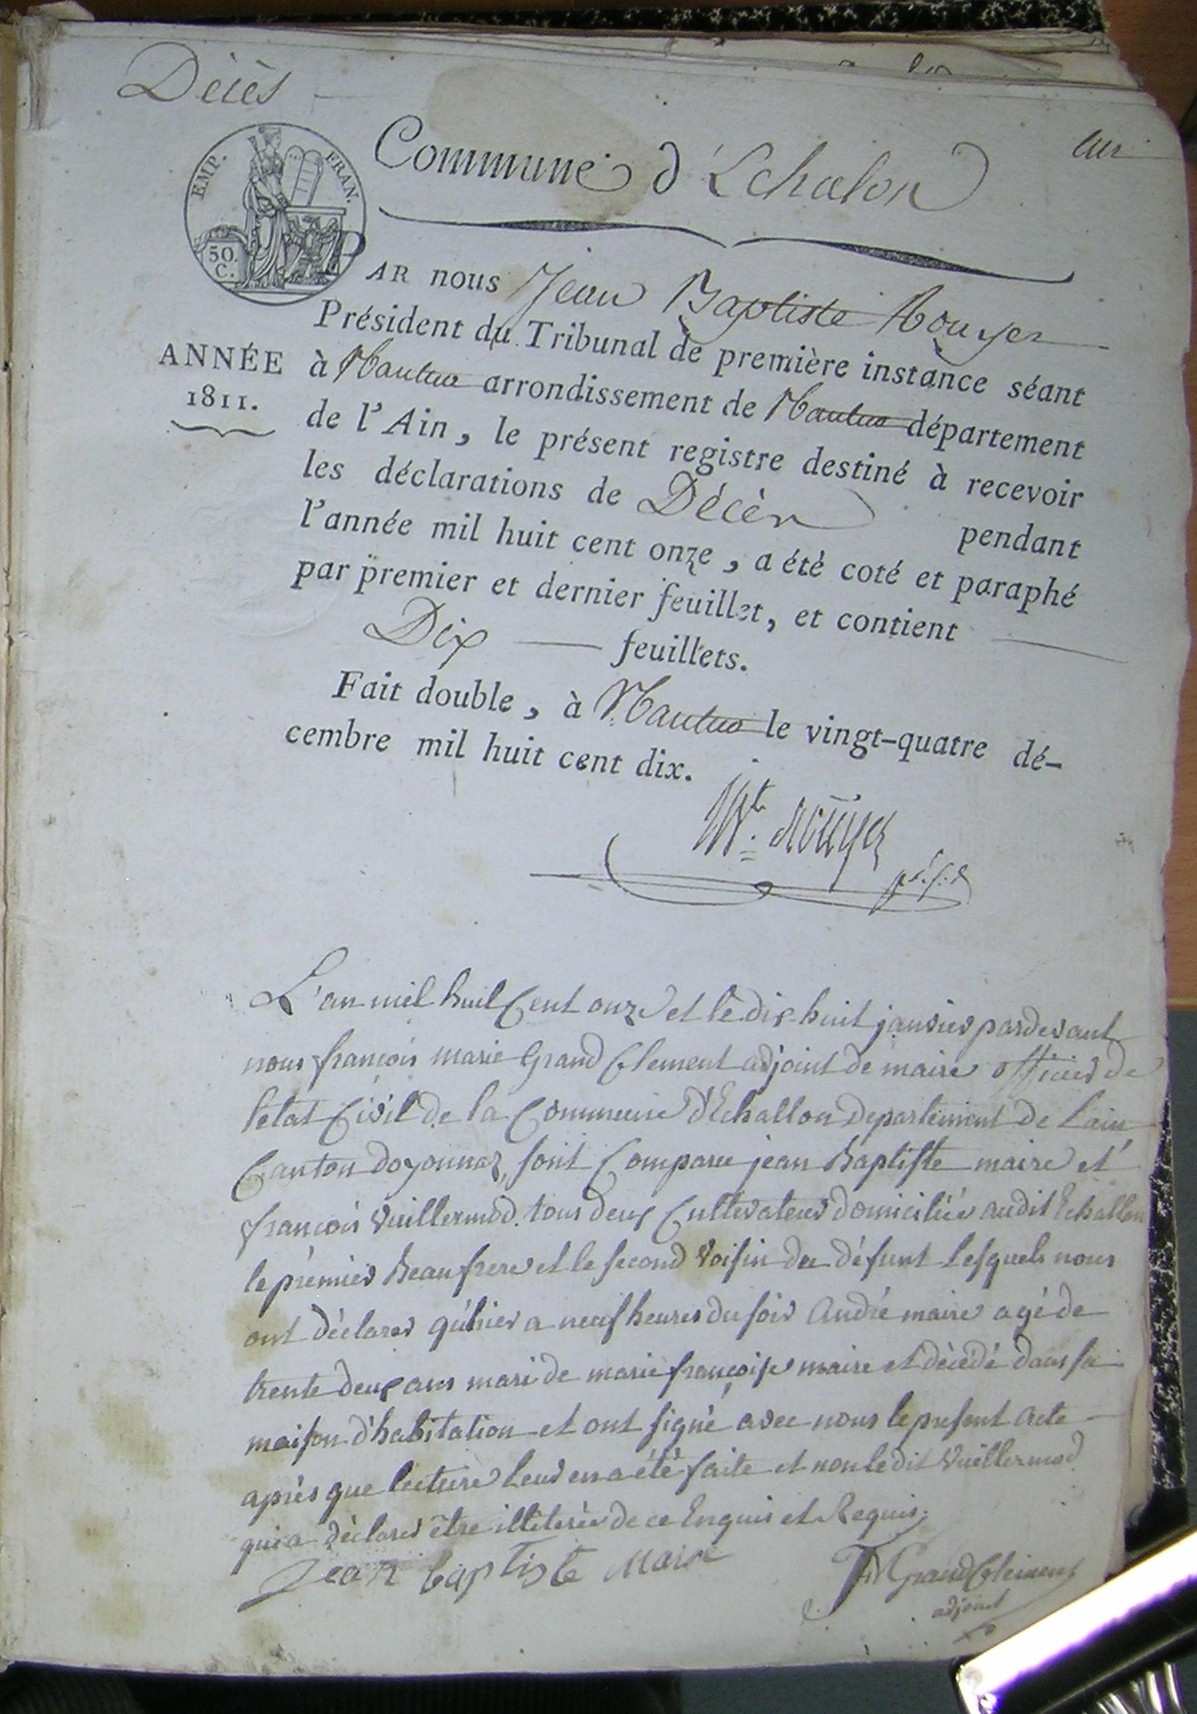 Décès
Commune d'Echalon
EMP. FRAN.
50. C.
PAR nous Jean Baptiste Rouyer
Président du Tribunal de première instance séant
ANNÉE 1811.
à Nantua arrondissement de Nantua département
de l'Ain, le présent registre destiné à recevoir
les déclarations de Décès pendant
l'année mil huit cent onze, a été coté et paraphé
par premier et dernier feuillet, et contient
Dix feuillets.
Fait double, à Nantua le vingt-quatre dé-
cembre mil huit cent dix.
Bte. Rouyer
L'an mil huit Cent onze et le dix-huit janvier pardevant
nous françois marie Grand Clement adjoint de maire officier de
letat Civil de la Commune d'Echallon Departement de Lain
Canton doyonnaz, sont Comparu jean Baptiste maire et
françois Vuillermod tous deux Cultivateur domiciliés audit Echallon
le premier Beaufrere et le second Voisin du défunt Lesquels nous
ont déclarer qu'hier a neuf heures du soir André maire agé de
trente deux ans mari de marie françoise maire et décédé dans sa
maison d'habitation et ont signé avec nous le présent acte
après que lecture Leur en a été faite et non ledit Vuillermod
qui a déclarer être illiterée de ce Enquis et Requis.
Jean baptiste Maire
GrandClement
adjoint